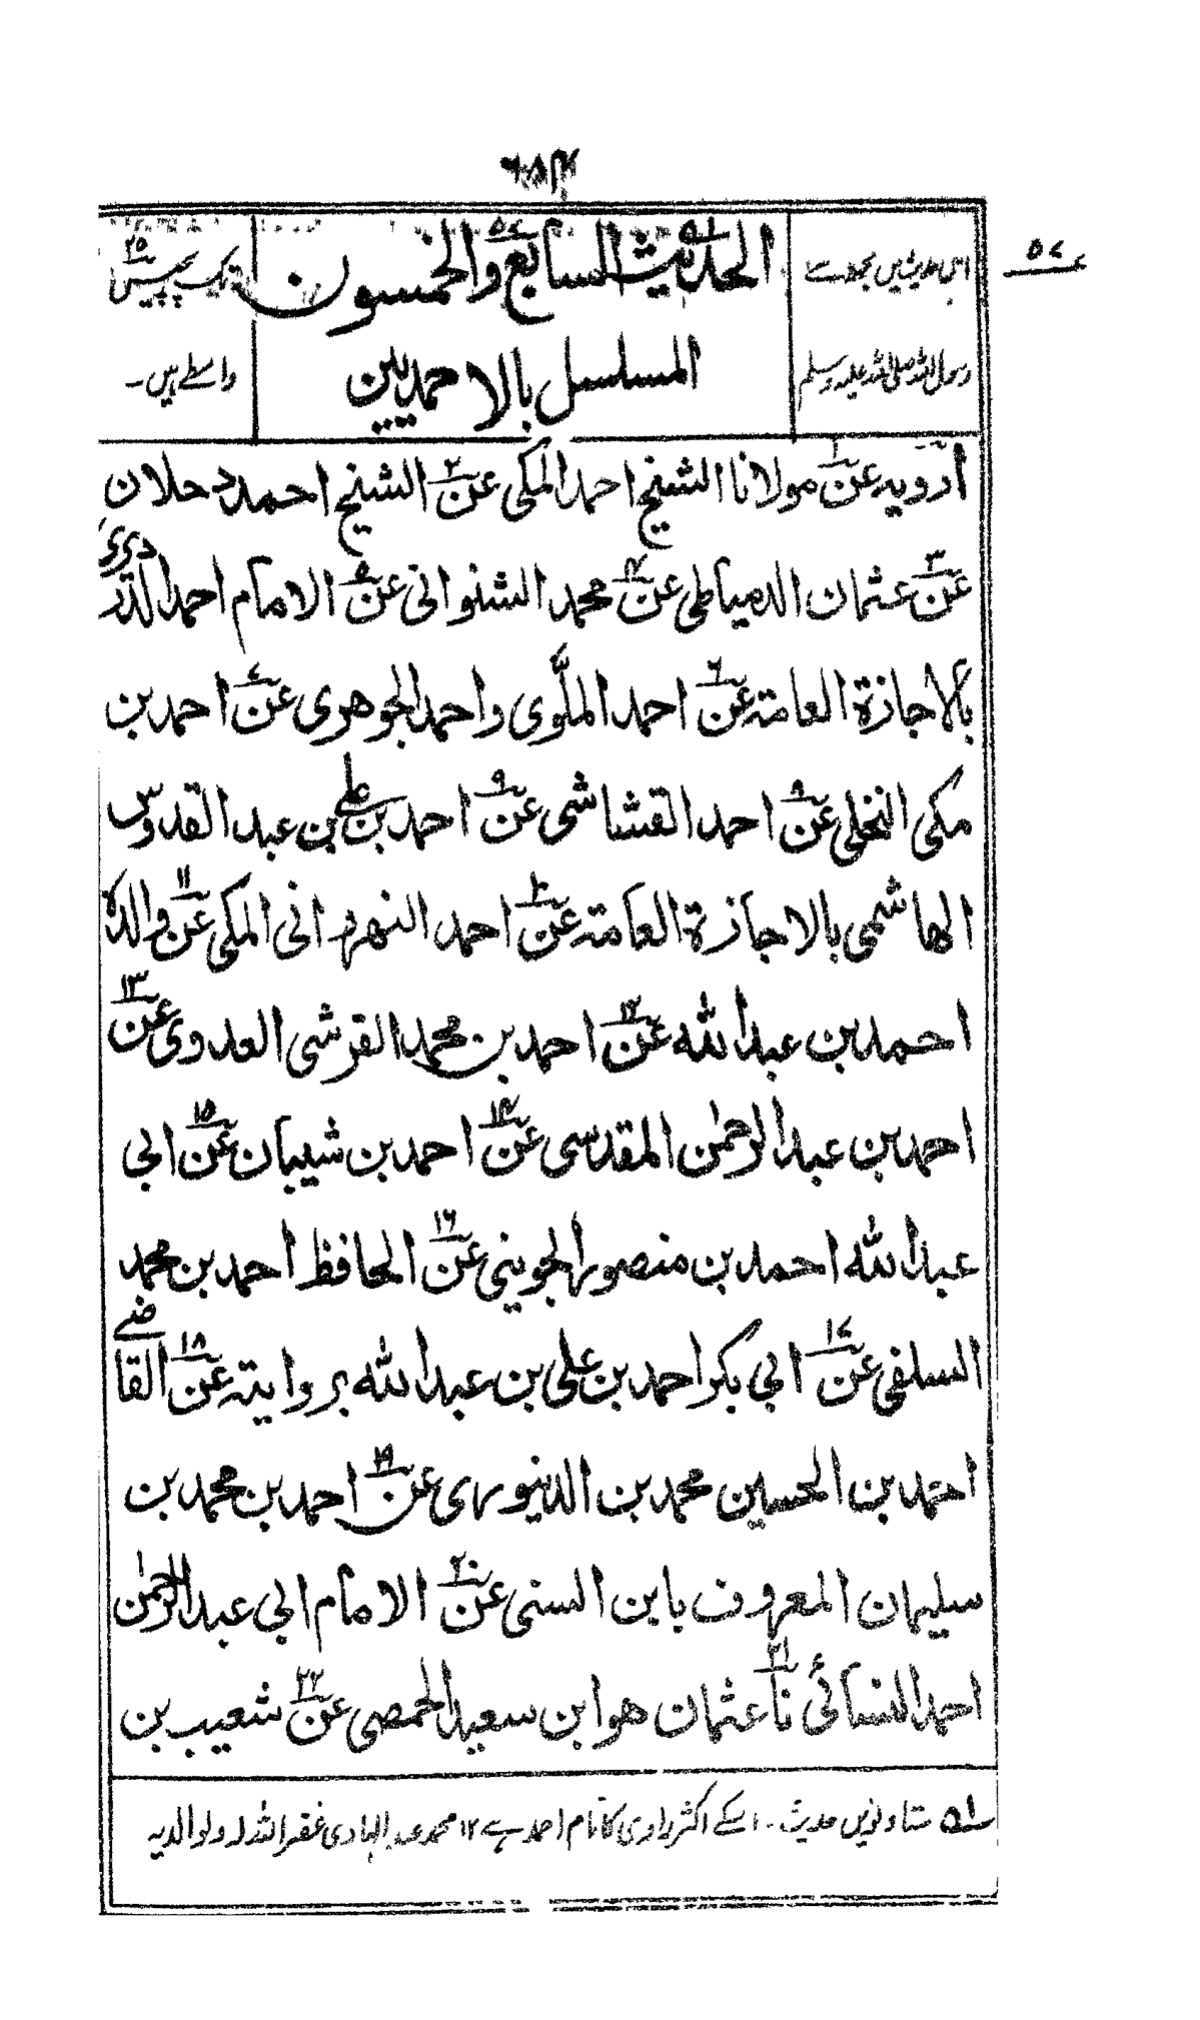 ۵۷
اس حدیث میں مجھ سے
رسول اللہ صلی اللہ علیہ وسلم
الحدیث السابع والخمسون
۵۷
المسلسل بالاحمدیین
تک پچیس
۲۵
واسطے ہیں۔
ارویہ عن۱ مولانا الشیخ احمد المکی عن۲ الشیخ احمد دحلان
عن۳ عثمان الدمیاطی عن۴ محمد الشنوانی عن۵ الامام احمد الدردیری
بالاجازة العامة عن۶ احمد الملّوی واحمد الجوهری عن۷ احمد بن
مکی النخلی عن۸ احمد القشاشی عن۹ احمد بن علی بن عبد القدوس
الهاشمی بالاجازة العامة عن۱۰ احمد النهروانی المکی عن۱۱ والده
احمد بن عبد الله عن۱۲ احمد بن محمد القرشی العدوی عن۱۳
احمد بن عبد الرحمٰن المقدسی عن۱۴ احمد بن شیبان عن۱۵ ابی
عبد الله احمد بن منصور الجوینی عن۱۶ الحافظ احمد بن محمد
السلفی عن۱۷ ابی بکر احمد بن علی بن عبد الله بروایته عن۱۸ القاضی
احمد بن الحسین محمد بن الدینوری عن۱۹ احمد بن محمد بن
سلیمان المعروف بابن السنی عن۲۰ الامام ابی عبد الرحمٰن
احمد النسائی نا۲۱ عثمان هو ابن سعید الحمصی عن۲۲ شعیب بن
۵۱ ستاونویں حدیث۔ اسکے اکثر راوی کا نام احمد ہے ۱۲ محمد عبد الہادی غفر اللہ لہ ولوالدیہ